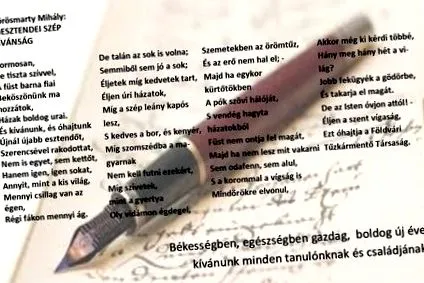 örösmarty Mihály:
ESZTENDEI SZÉP
VÁNSÁG
ormosan,
e tiszta szívvel,
füst barna fiai
Beköszönünk ma
hozzátok,
Házak boldog urai.
És kívánunk, és óhajtunk
Újnál újabb esztendőt,
Szerencsével rakodottat,
Nem is egyet, sem kettőt,
Hanem igen, igen sokat,
Annyit, mint a kis világ,
Mennyi csillag van az
égen,
Régi fákon mennyi ág.
De talán az sok is volna;
Semmiből sem jó a sok;
Éljetek míg kedvetek tart,
Éljen úri házatok,
Míg a szép leány kapós
lesz,
S kedves a bor, és kenyér,
Míg szomszédba a ma-
gyarnak
Nem kell futni ezekért,
Míg szívetek,
mint a gyertya
Oly vidámon égdegel,
Szemetekben az örömtűz,
És az erő nem hal el; -
Majd ha egykor
kürtőtökben
A pók szövi hálóját,
S vendég hagyta
házatokból
Füst nem ontja fel magát,
Majd ha nem lesz mit vakarni
Sem odafenn, sem alul,
S a korommal a vígság is
Mindörökre elvonul,
Akkor még ki kérdi többé,
Hány meg hány hét a vi-
lág?
Jobb fekügyék a gödörbe,
És takarja el magát.
De az Isten óvjon attól! -
Éljen a szent vígaság,
Ezt óhajtja a Földvári
Tűzkármentő Társaság.
Békességben, egészségben gazdag, boldog új éve
kívánunk minden tanulónknak és családjának